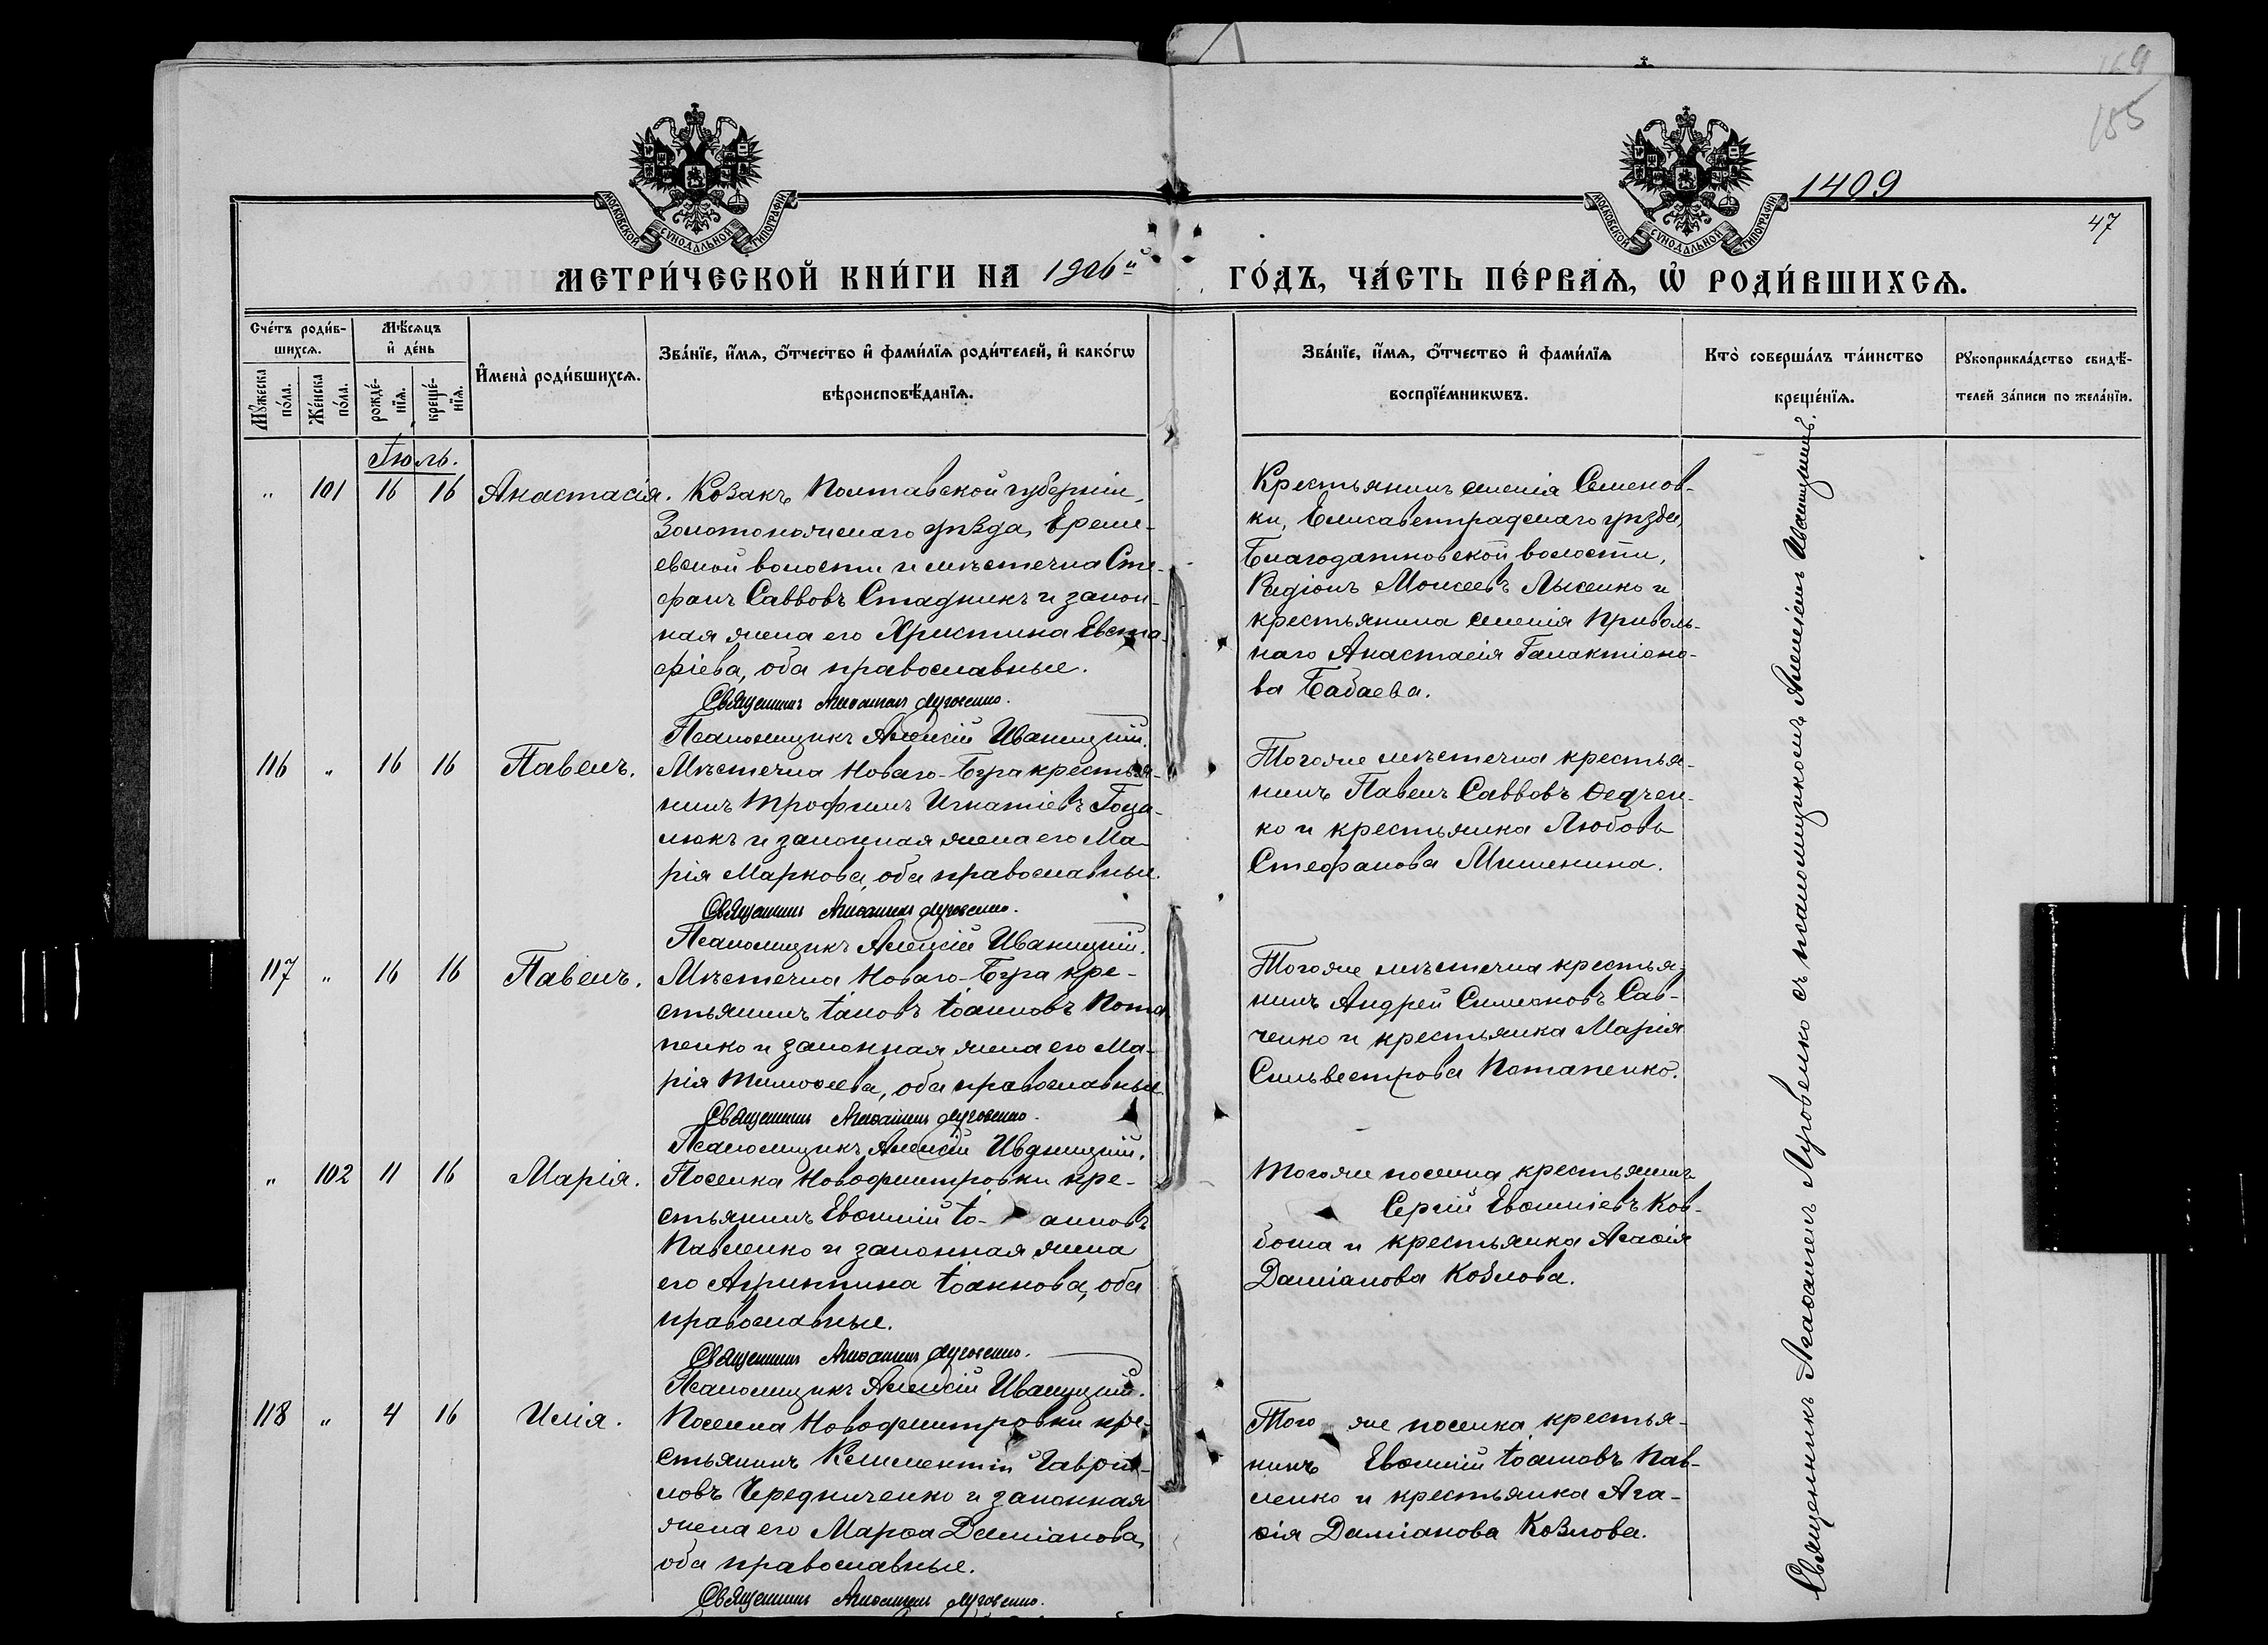 169
155
1409
47
МОСКОВСКОЙ СѴНОДАЛЬНОЙ ТИПОГРАФІИ
МОСКОВСКОЙ СѴНОДАЛЬНОЙ ТИПОГРАФІИ
МЕТРИ́ЧЕСКОЙ КНИ́ГИ НА 1906й ГО́ДЪ, ЧА́СТЬ ПЕ́РВАѦ, Ѡ҆ РОДИ́ВШИХСѦ.
Сче́тъ роди́в-
шихсѧ.
Мꙋ́жеска по́ла.
Же́нска по́ла.
Мѣ́сѧцъ
и҆ де́нь
рожде́-
нїѧ.
креще́-
нїѧ.
И҆мена̀ роди́вшихсѧ.
Зва́нїе, и҆́мѧ, ѻ҆́тчество и҆ фами́лїѧ роди́телей, и҆ како́гѡ
вѣроисповѣ́данїѧ.
Зва́нїе, и҆́мѧ, ѻ҆́тчество и҆ фами́лїѧ
воспрїе́мникѡвъ.
Кто̀ соверша́лъ та́инство
креще́нїѧ.
Рꙋкоприкла́дство свидѣ́-
телей за́писи по жела́нїю.
Іюль.
" 101 16 16 Анастасія. Козакъ Полтавской губерніи,
Золотоношскаго уѣзда, Ереми-
евской волости и мѣстечка Сте-
фанъ Саввовъ Стадникъ и закон-
ная жена его Христина Евста-
фіева, оба православные.
Священникъ Агаѳангелъ Луговенко.
Псаломщикъ Алексій Иваницкій.
Крестьянинъ селенія Семенов-
ки, Елисаветградскаго уѣзда,
Благодатновской волости,
Родіонъ Моисеевъ Лысенко и
крестьянка селенія Приволь-
наго Анастасія Галактіоно-
ва Бабаева.
116 " 16 16 Павелъ. Мѣстечка Новаго-Буга крестья-
нинъ Трофимъ Игнатіевъ Гоца-
люкъ и законная жена его Ма-
рія Маркова, оба православные.
Священникъ Агаѳангелъ Луговенко.
Псаломщикъ Алексій Иваницкій.
Тогоже мѣстечка крестья-
нинъ Павелъ Саввовъ Ѳедчен-
ко и крестьянка Любовь
Стефанова Мишенина.
117 " 16 16 Павелъ. Мѣстечка Новаго-Буга кре-
стьянинъ Іаковъ Іоанновъ Пота-
пенко и законная жена его Ма-
рія Тимоѳеева, оба православные
Священникъ Агаѳангелъ Луговенко.
Псаломщикъ Алексій Иваницкій.
Тогоже мѣстечка крестья-
нинъ Андрей Симоновъ Сав-
ченко и крестьянка Марія
Сильвестрова Потапенко.
" 102 11 16 Марія. Поселка Новодмитровки кре-
стьянинъ Евѳимій Іо- анновъ
Павленко и законная жена
его Агриппина Іоаннова, оба
православные.
Священникъ Агаѳангелъ Луговенко.
Псаломщикъ Алексій Иваницкій.
Тогоже поселка крестьянинъ
Сергій Евѳиміевъ Ков-
баша и крестьянка Агаѳія
Даміанова Козлова.
118 " 4 16 Илія. Поселка Новодмитровки кре-
стьянинъ Климентій Гаврии-
ловъ Чередниченко и законная
жена его Марѳа Даміанова,
оба православные.
Священникъ Агаѳангелъ Луговенко.
Того же поселка крестья-
нинъ Евѳимій Іоанновъ Пав-
ленко и крестьянка Ага-
ѳія Даміанова Козлова.
Священникъ Агаѳангелъ Луговенко съ псаломщикомъ Алексіемъ Иваницкимъ.